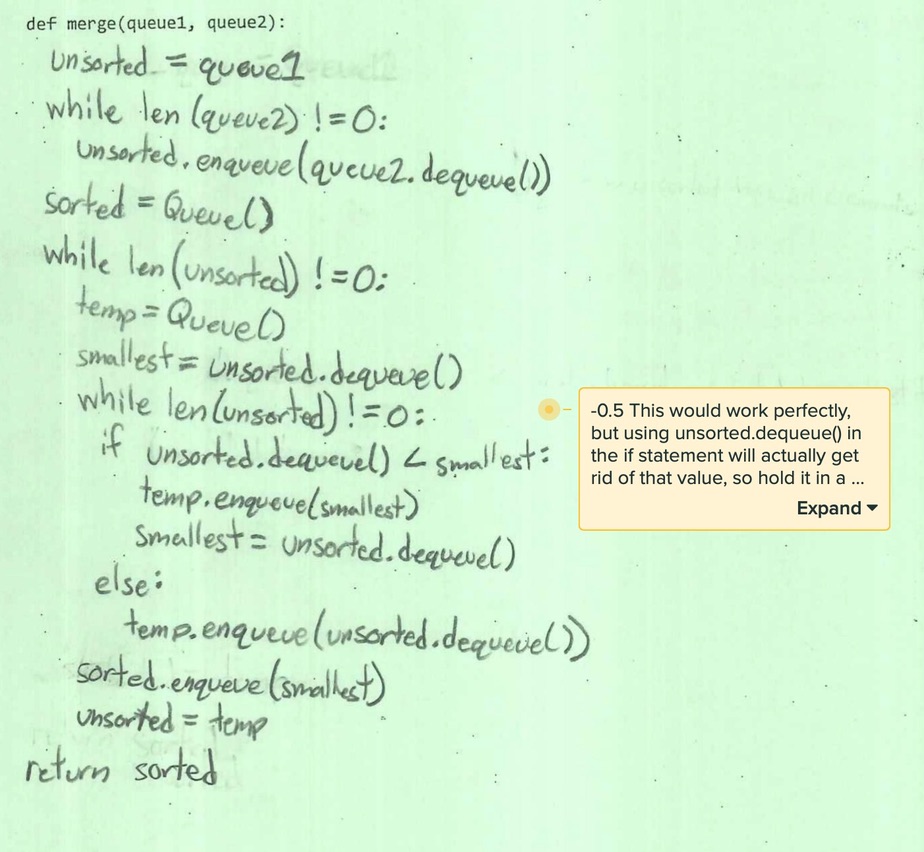 def merge(queue1, queue2):
unsorted = queue1
while len(queue2) != 0:
unsorted.enqueue(queue2.dequeue())
sorted = Queue()
while len(unsorted) != 0:
temp = Queue()
smallest = unsorted.dequeue()
while len(unsorted) != 0:
if unsorted.dequeue() < smallest:
temp.enqueue(smallest)
smallest = unsorted.dequeue()
else:
temp.enqueue(unsorted.dequeue())
sorted.enqueue(smallest)
unsorted = temp
return sorted
-0.5 This would work perfectly,
but using unsorted.dequeue() in
the if statement will actually get
rid of that value, so hold it in a ...
Expand